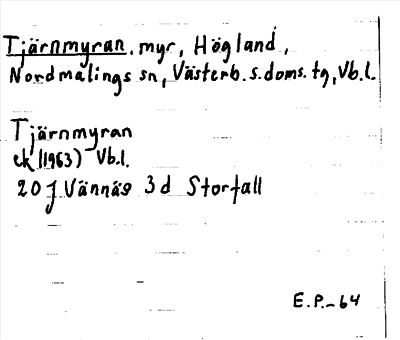 Tjärnmyran, myr, Högland,
Nordmalings sn, Västerb. s. doms. tg, Vb. l.
Tjärnmyran
ek (1963) Vb. l.
20 J Vännäs 3 d Storfall
E. P. - 64